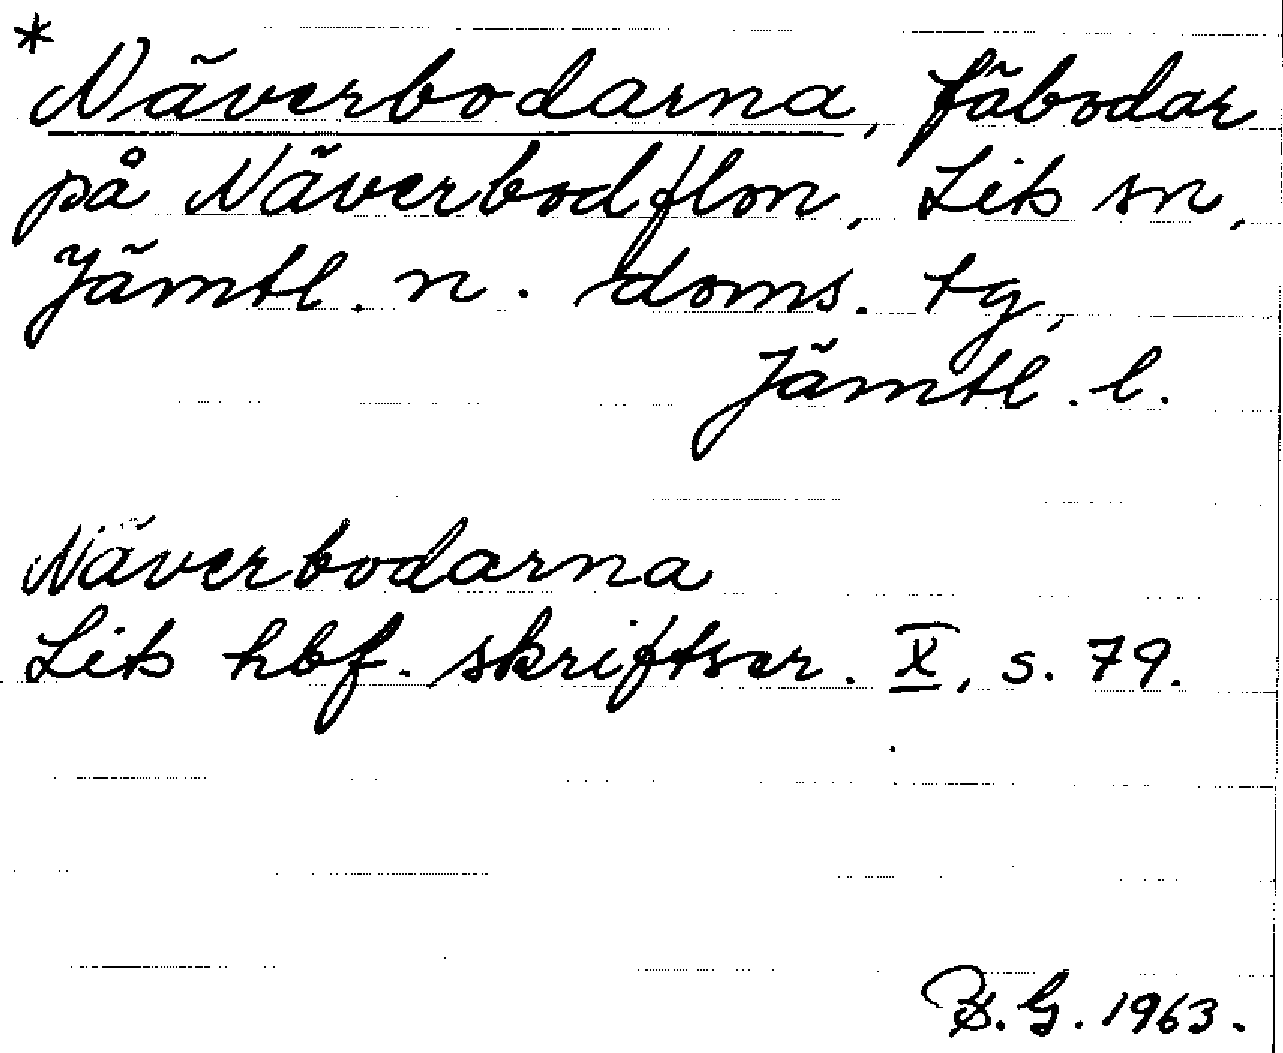 * Näverbodarna, fäbodar
på Näverbodflon, Lits sn,
Jämtl. n. doms. tg,
Jämtl. l.
Näverbodarna
Lits hbf. skriftser. X, s. 79.
G. 1963.